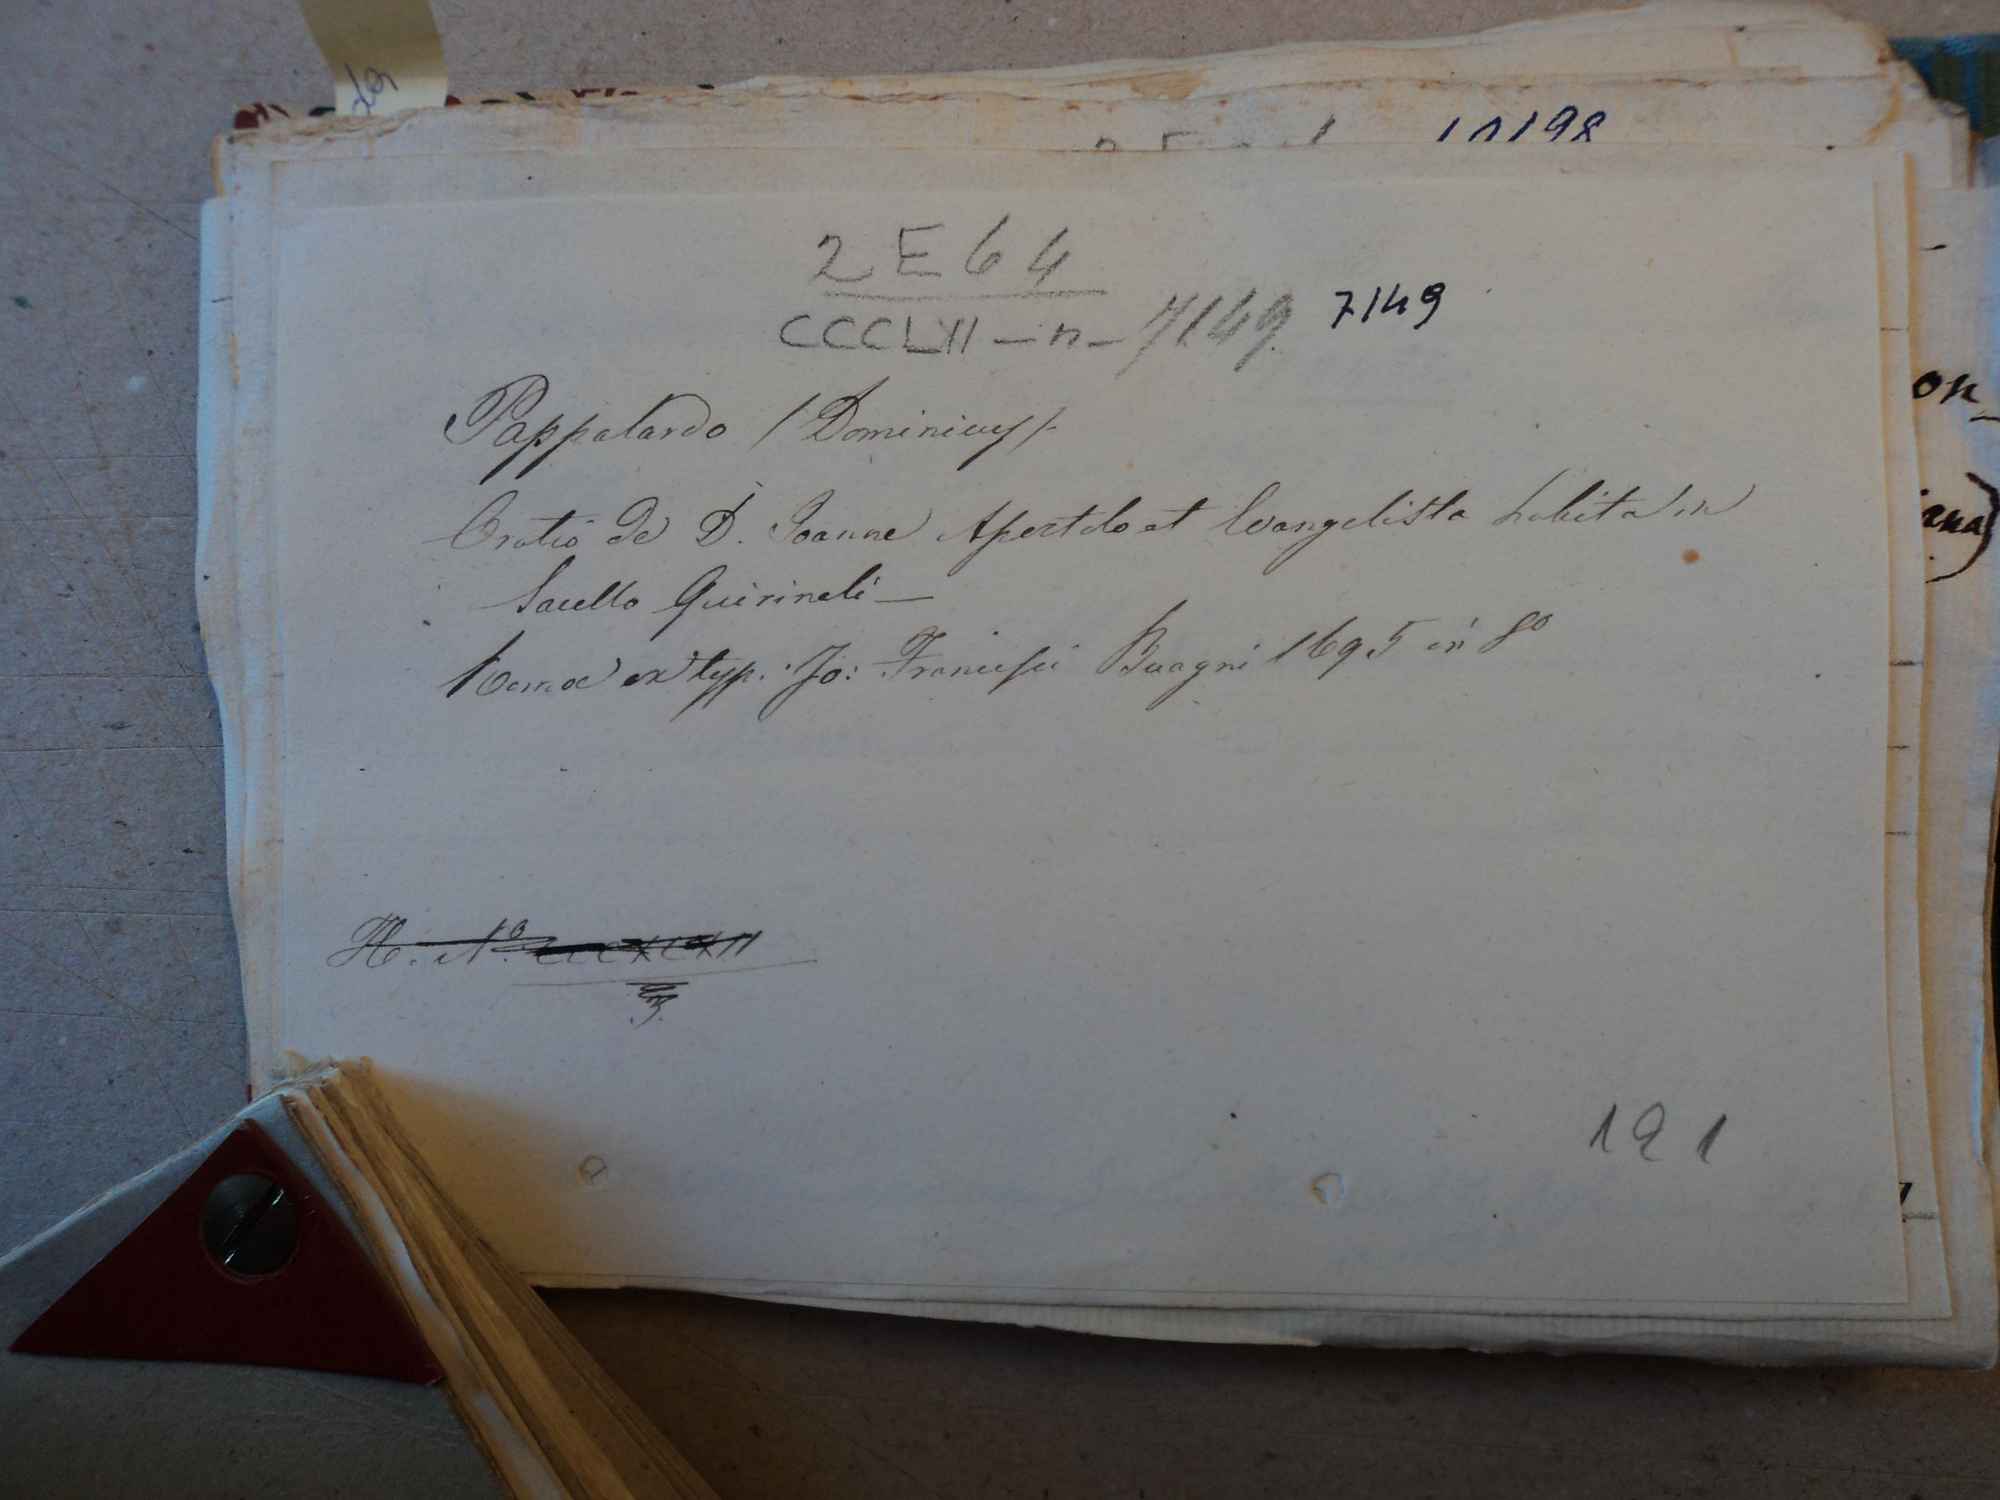 11198
2 E 6 4
CCCLII - n - 7149. 7149
Pappalardo (Dominicus)
Oratio de D. Joanne Apostolo et Evangelista habita in
Sacello Quirinali —
Romae ex typ: Jo: Francisci Buagni 1695 in 8º
H. Nº
121
on_
iana)